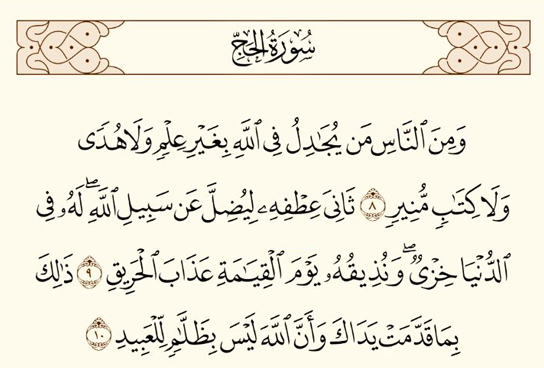 سُورَةُ الحَجِّ
وَمِنَ ٱلنَّاسِ مَن يُجَـٰدِلُ فِى ٱللَّهِ بِغَيْرِ عِلْمٍ وَلَا هُدًى
وَلَا كِتَـٰبٍ مُّنِيرٍ ٨ ثَانِىَ عِطْفِهِۦ لِيُضِلَّ عَن سَبِيلِ ٱللَّهِ ۖ لَهُۥ فِى
ٱلدُّنْيَا خِزْىٌ ۖ وَنُذِيقُهُۥ يَوْمَ ٱلْقِيَـٰمَةِ عَذَابَ ٱلْحَرِيقِ ٩ ذَٰلِكَ
بِمَا قَدَّمَتْ يَدَاكَ وَأَنَّ ٱللَّهَ لَيْسَ بِظَلَّـٰمٍ لِّلْعَبِيدِ ١٠